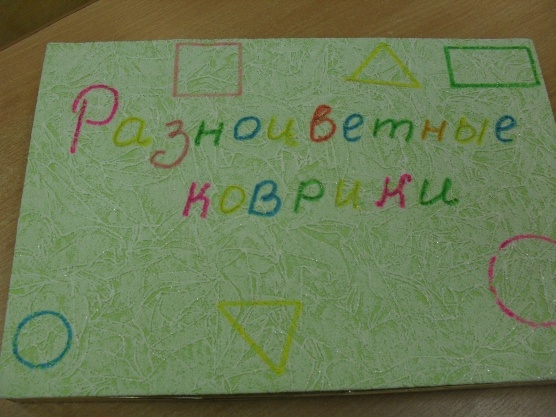 Разноцветные
коврики